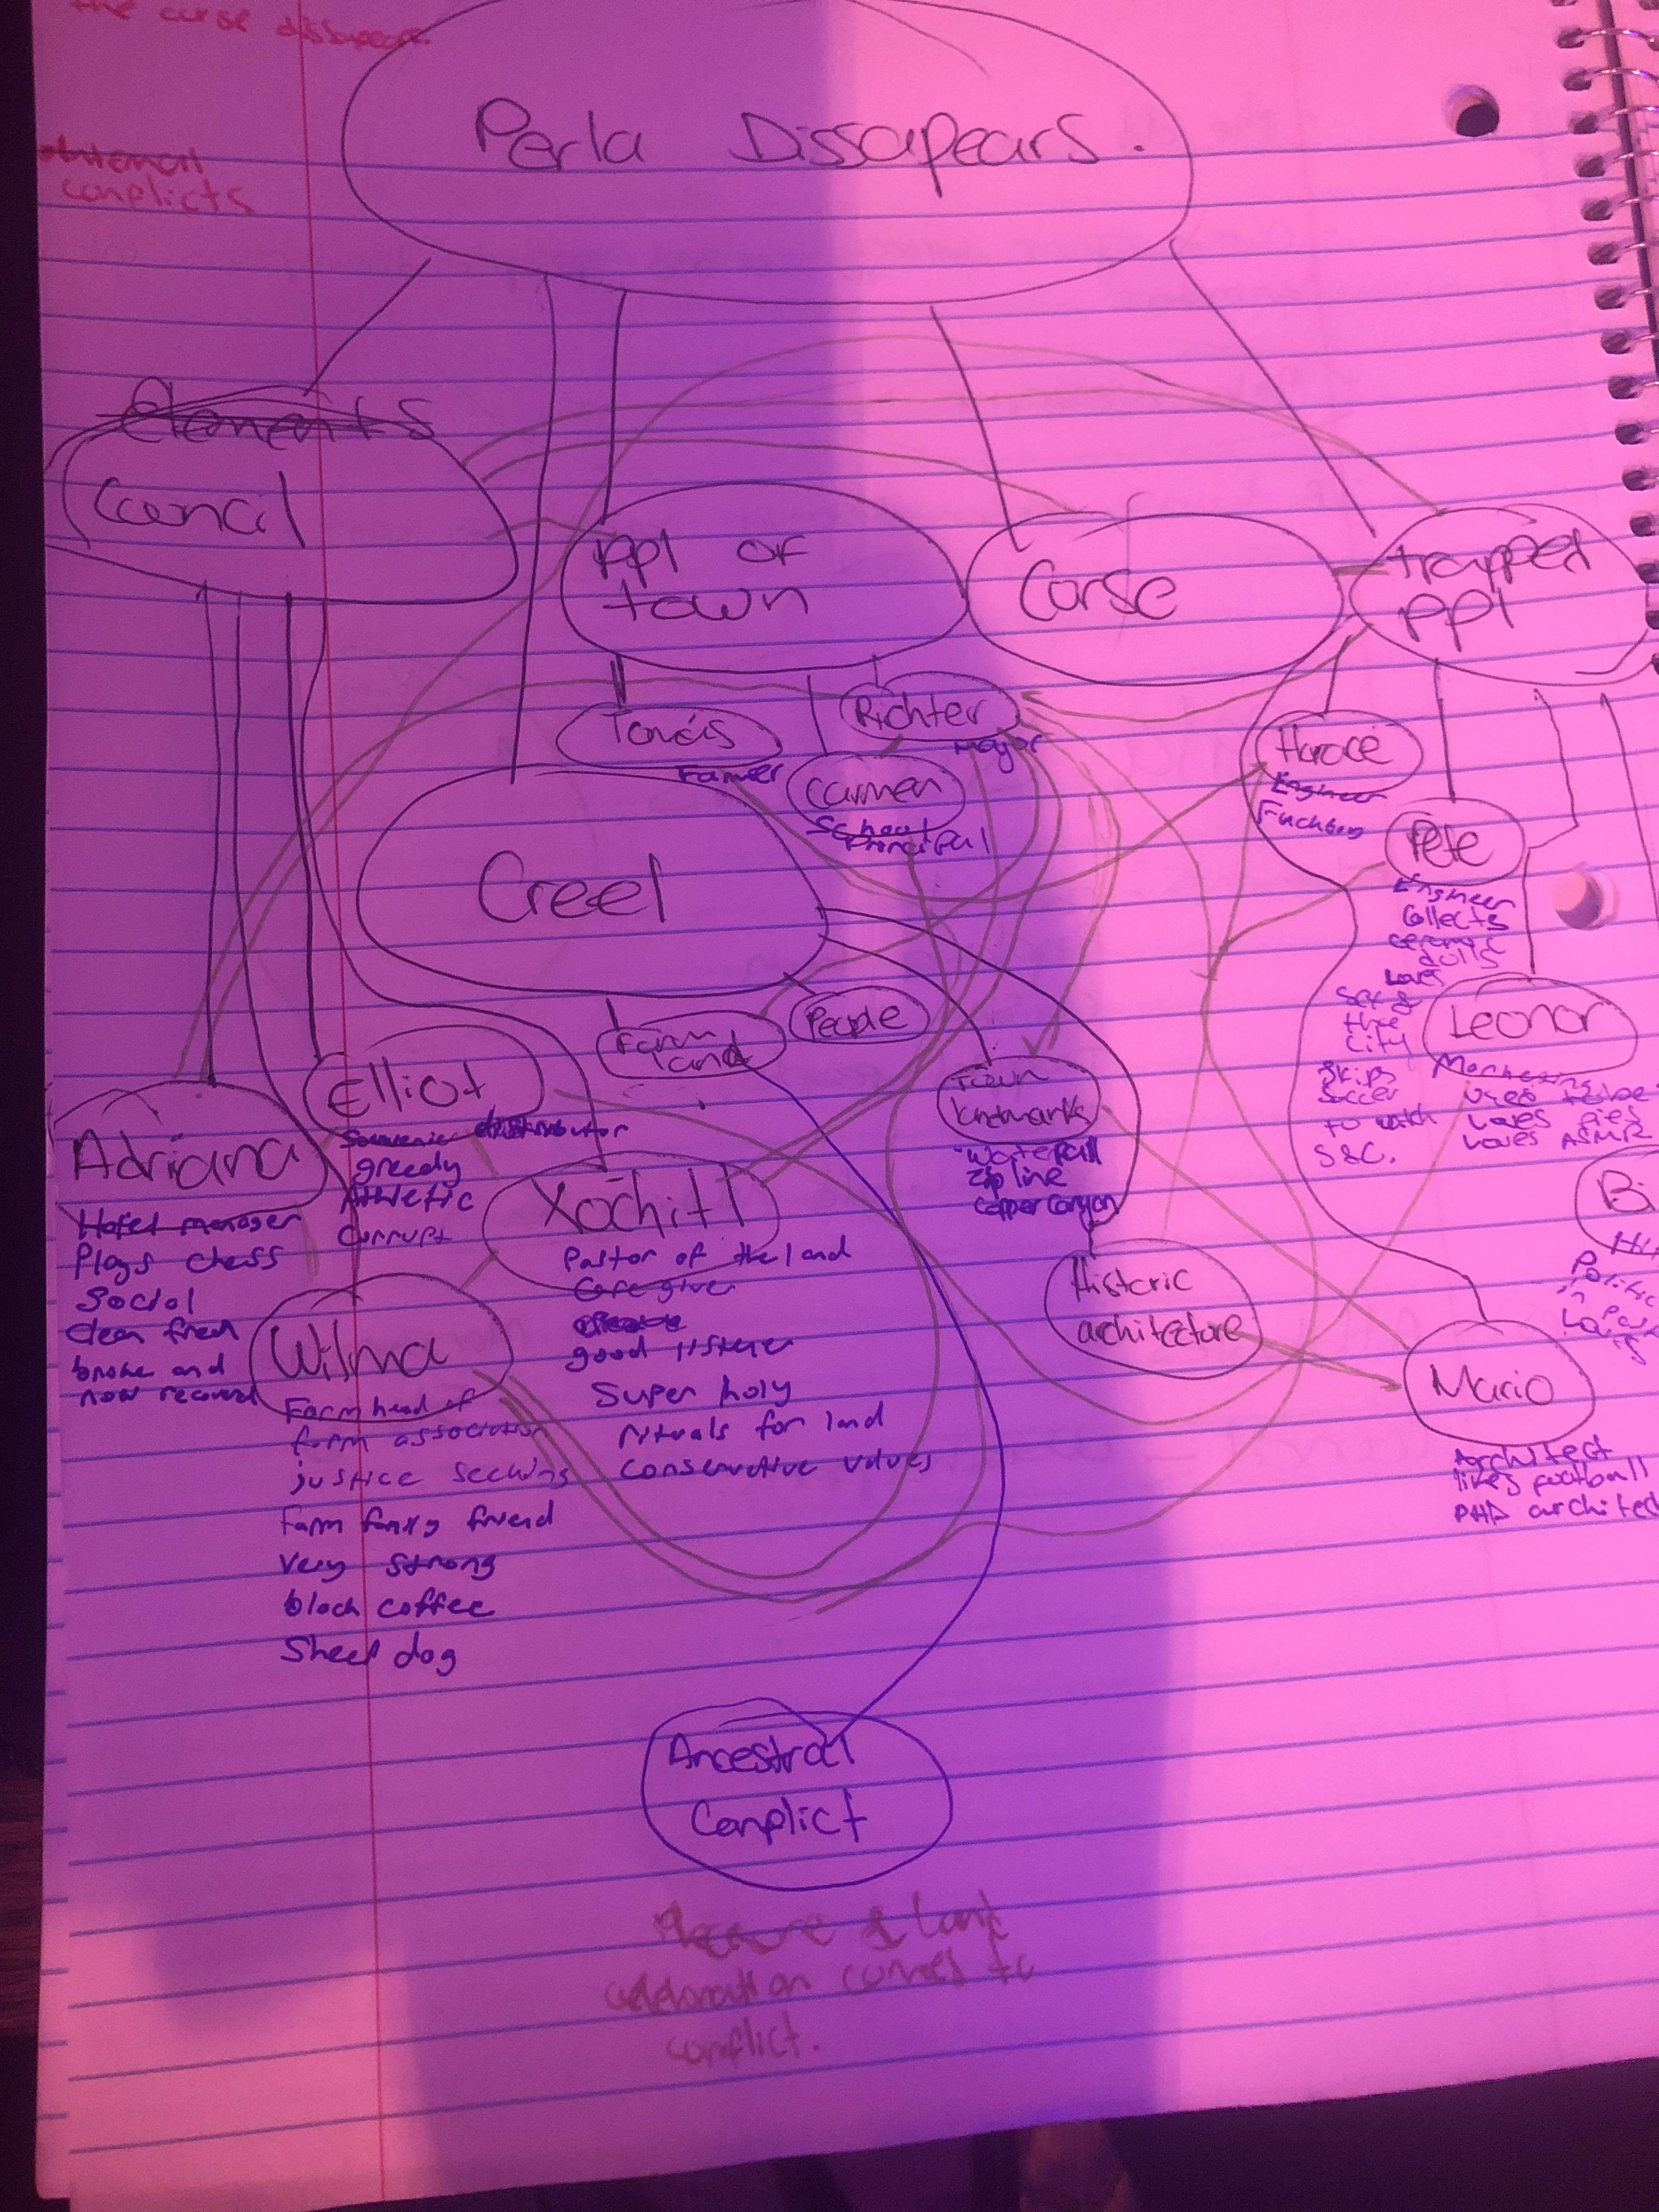 the curse dissapears.
conflicts
Perla Dissapears.
Elements
Council
ppl of
town
Curse
trapped
ppl
Tomás
Farmer
Richter
Mayor
Carmen
School
Principal
Horace
Engineer
Pete
Engineer
Collects
ceramic
dolls
Loves
Sex &
the
City
Skips
Soccer
to watch
S&C.
Creel
Farm
land
People
Town
landmarks
Waterfall
Zip line
Copper Canyon
Leonor
Loves pies
Loves ASMR
Bi
Elliot
Souvenir distributor
greedy
Athletic
Corrupt
Adriana
Hotel manager
Plays chess
Social
broke and
now recovered
Xochitl
Pastor of the land
Care giver
good listener
Super holy
rituals for land
conservative values
Wilma
Farm head of
farm association
justice seeking
farm family friend
very strong
black coffee
Sheep dog
Historic
architecture
Mario
Architect
likes football
PHD architec
Ancestral
Conflict
celebration comes to
conflict.